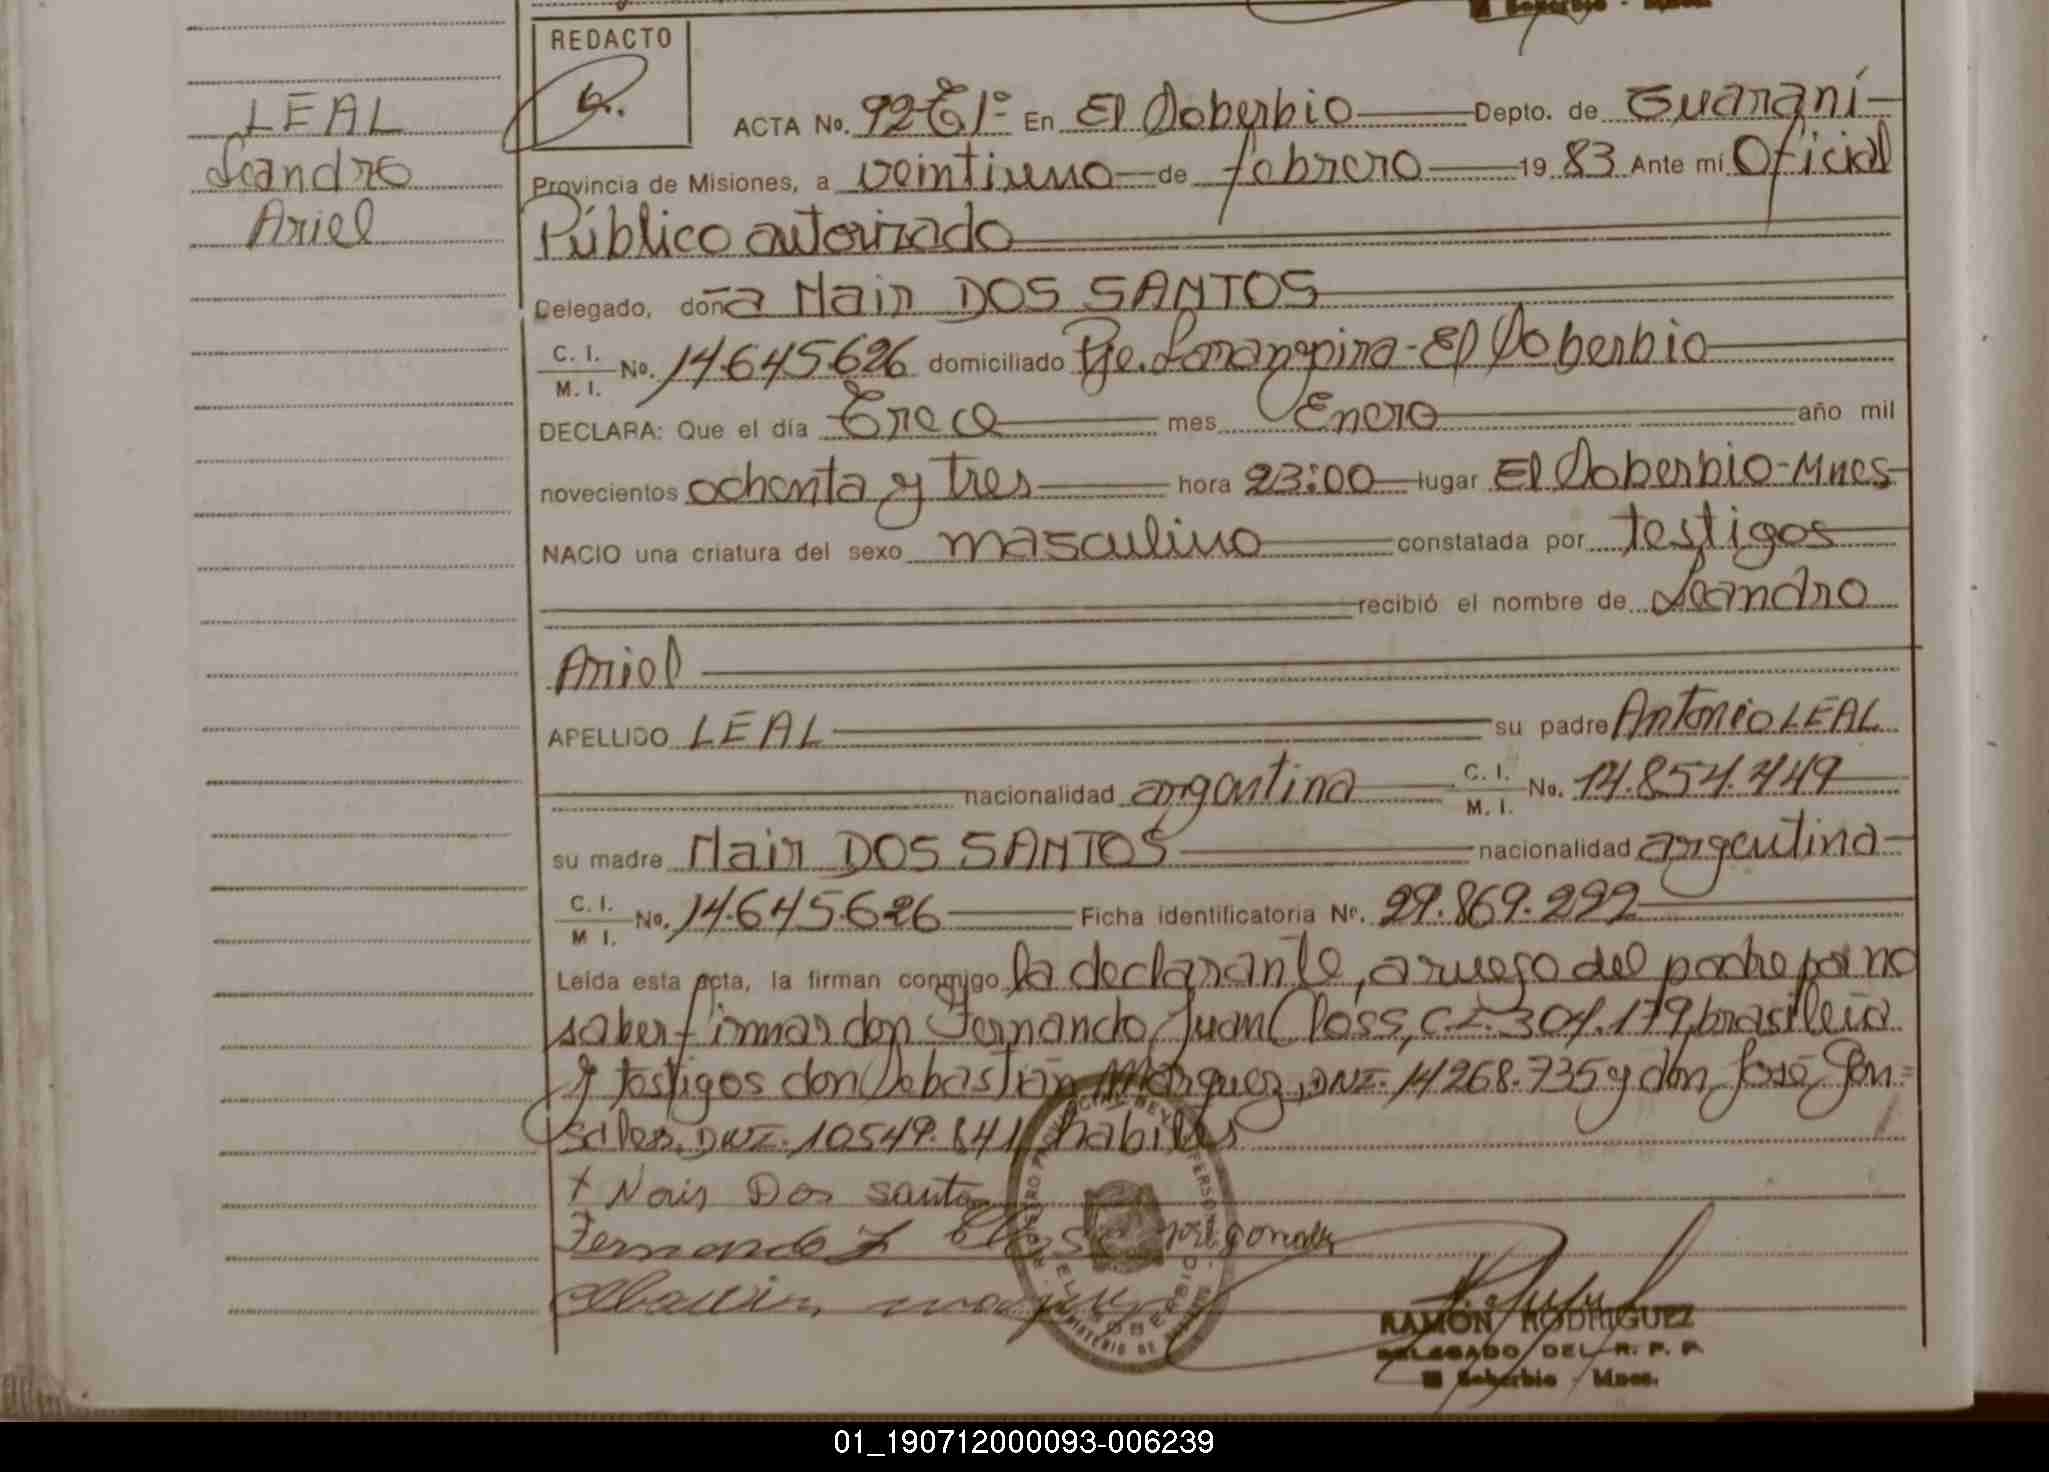 REDACTO
LEAL
Leandro
Ariel
ACTA No. 92 T 1º En El Soberbio Depto. de Guaraní
Provincia de Misiones, a veintiuno de febrero 19 83 Ante mí Oficial
Público autorizado
Delegado, doña Nair DOS SANTOS
C. I. / M. I. No. 14.645.626 domiciliado Pje. El Soberbio
DECLARA: Que el día Trece mes Enero año mil
novecientos ochenta y tres hora 23:00 lugar El Soberbio-Mnes
NACIO una criatura del sexo masculino constatada por testigos
recibió el nombre de Leandro
Ariel
APELLIDO LEAL su padre Antonio LEAL
nacionalidad argentina C. I. / M. I. No. 14.854.449
su madre Nair DOS SANTOS nacionalidad argentina
C. I. / M I. No. 14.645.626 Ficha identificatoria Nº. 29.869.292
Leída esta acta, la firman conmigo la declarante, a ruego del padre por no
saber firmar don Fernando Juan Closs, C.I. 304.179, brasileña
y testigos don Sebastián Marquez, DNI. 14268.735 y don José Gon=
sales, DNI. 10549.841 habiles
+ Nair Dos santos
Fernando J Closs José gonsales
RAMON RODRIGUEZ
DELEGADO DEL R. P. P.
El Soberbio - Mnes.
01_190712000093-006239